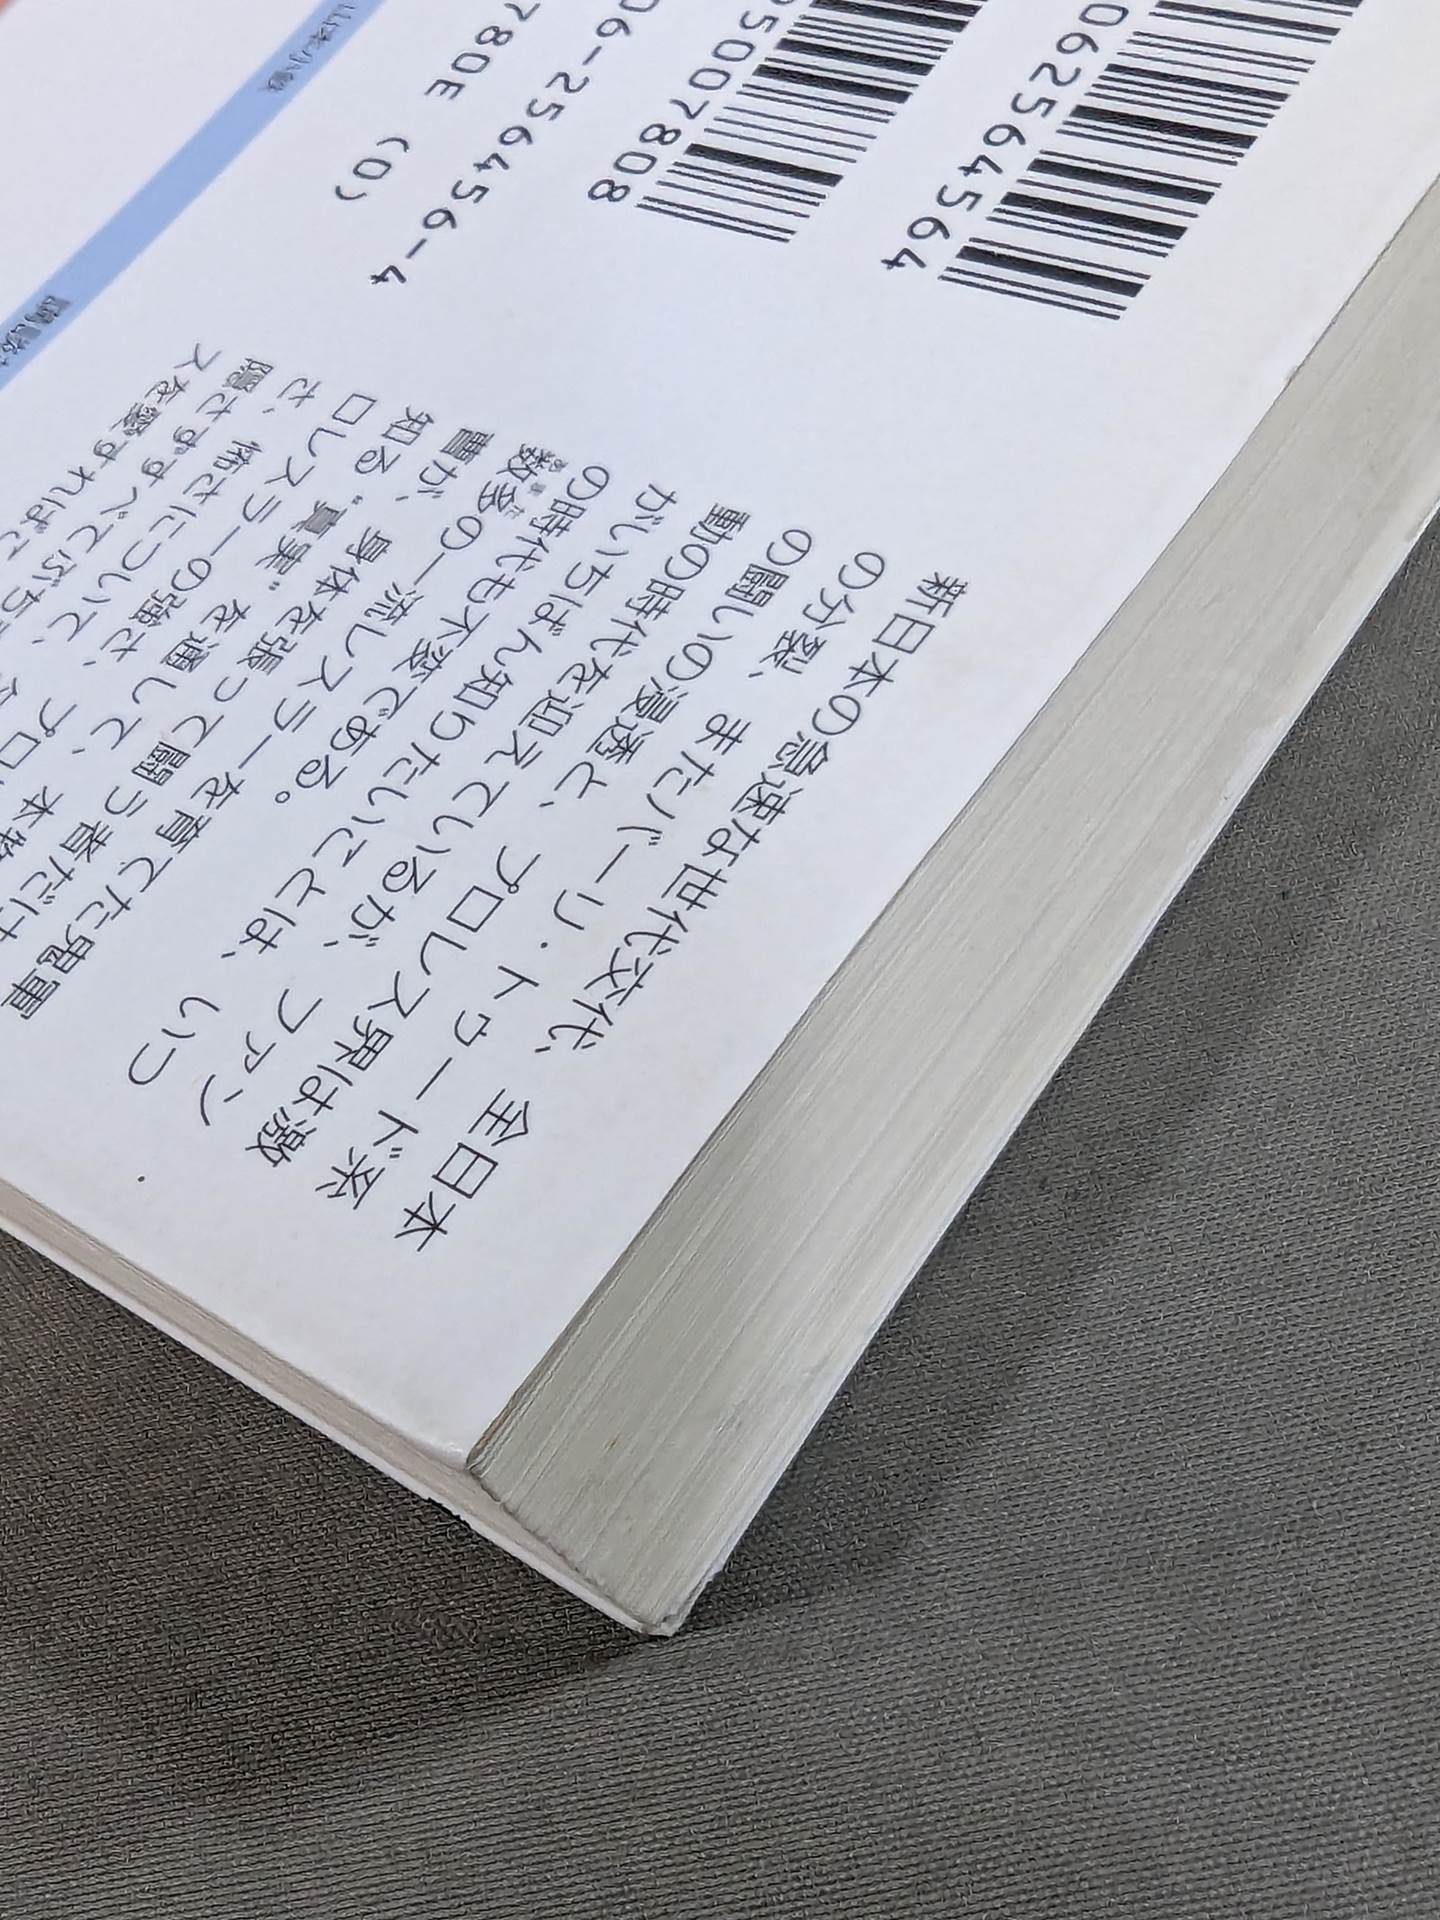 0625 64564
5007808
06-256456-4
780E (0)
新日本の急速な世代交代、全日本
の分裂、またバーリ・トゥード系
の闘いの浸透と、プロレス界は激
動の時代を迎えているが、ファン
がいちばん知りたいことは、いつ
の時代も不変である。
数多の一流レスラーを育てた鬼軍
曹が、身体を張って闘う者だけ
知る“真実”を通して、本物
ロレスラーの強さ、プロ
さ、怖さについて、
隠さずすべてぶち
スを愛すればこ